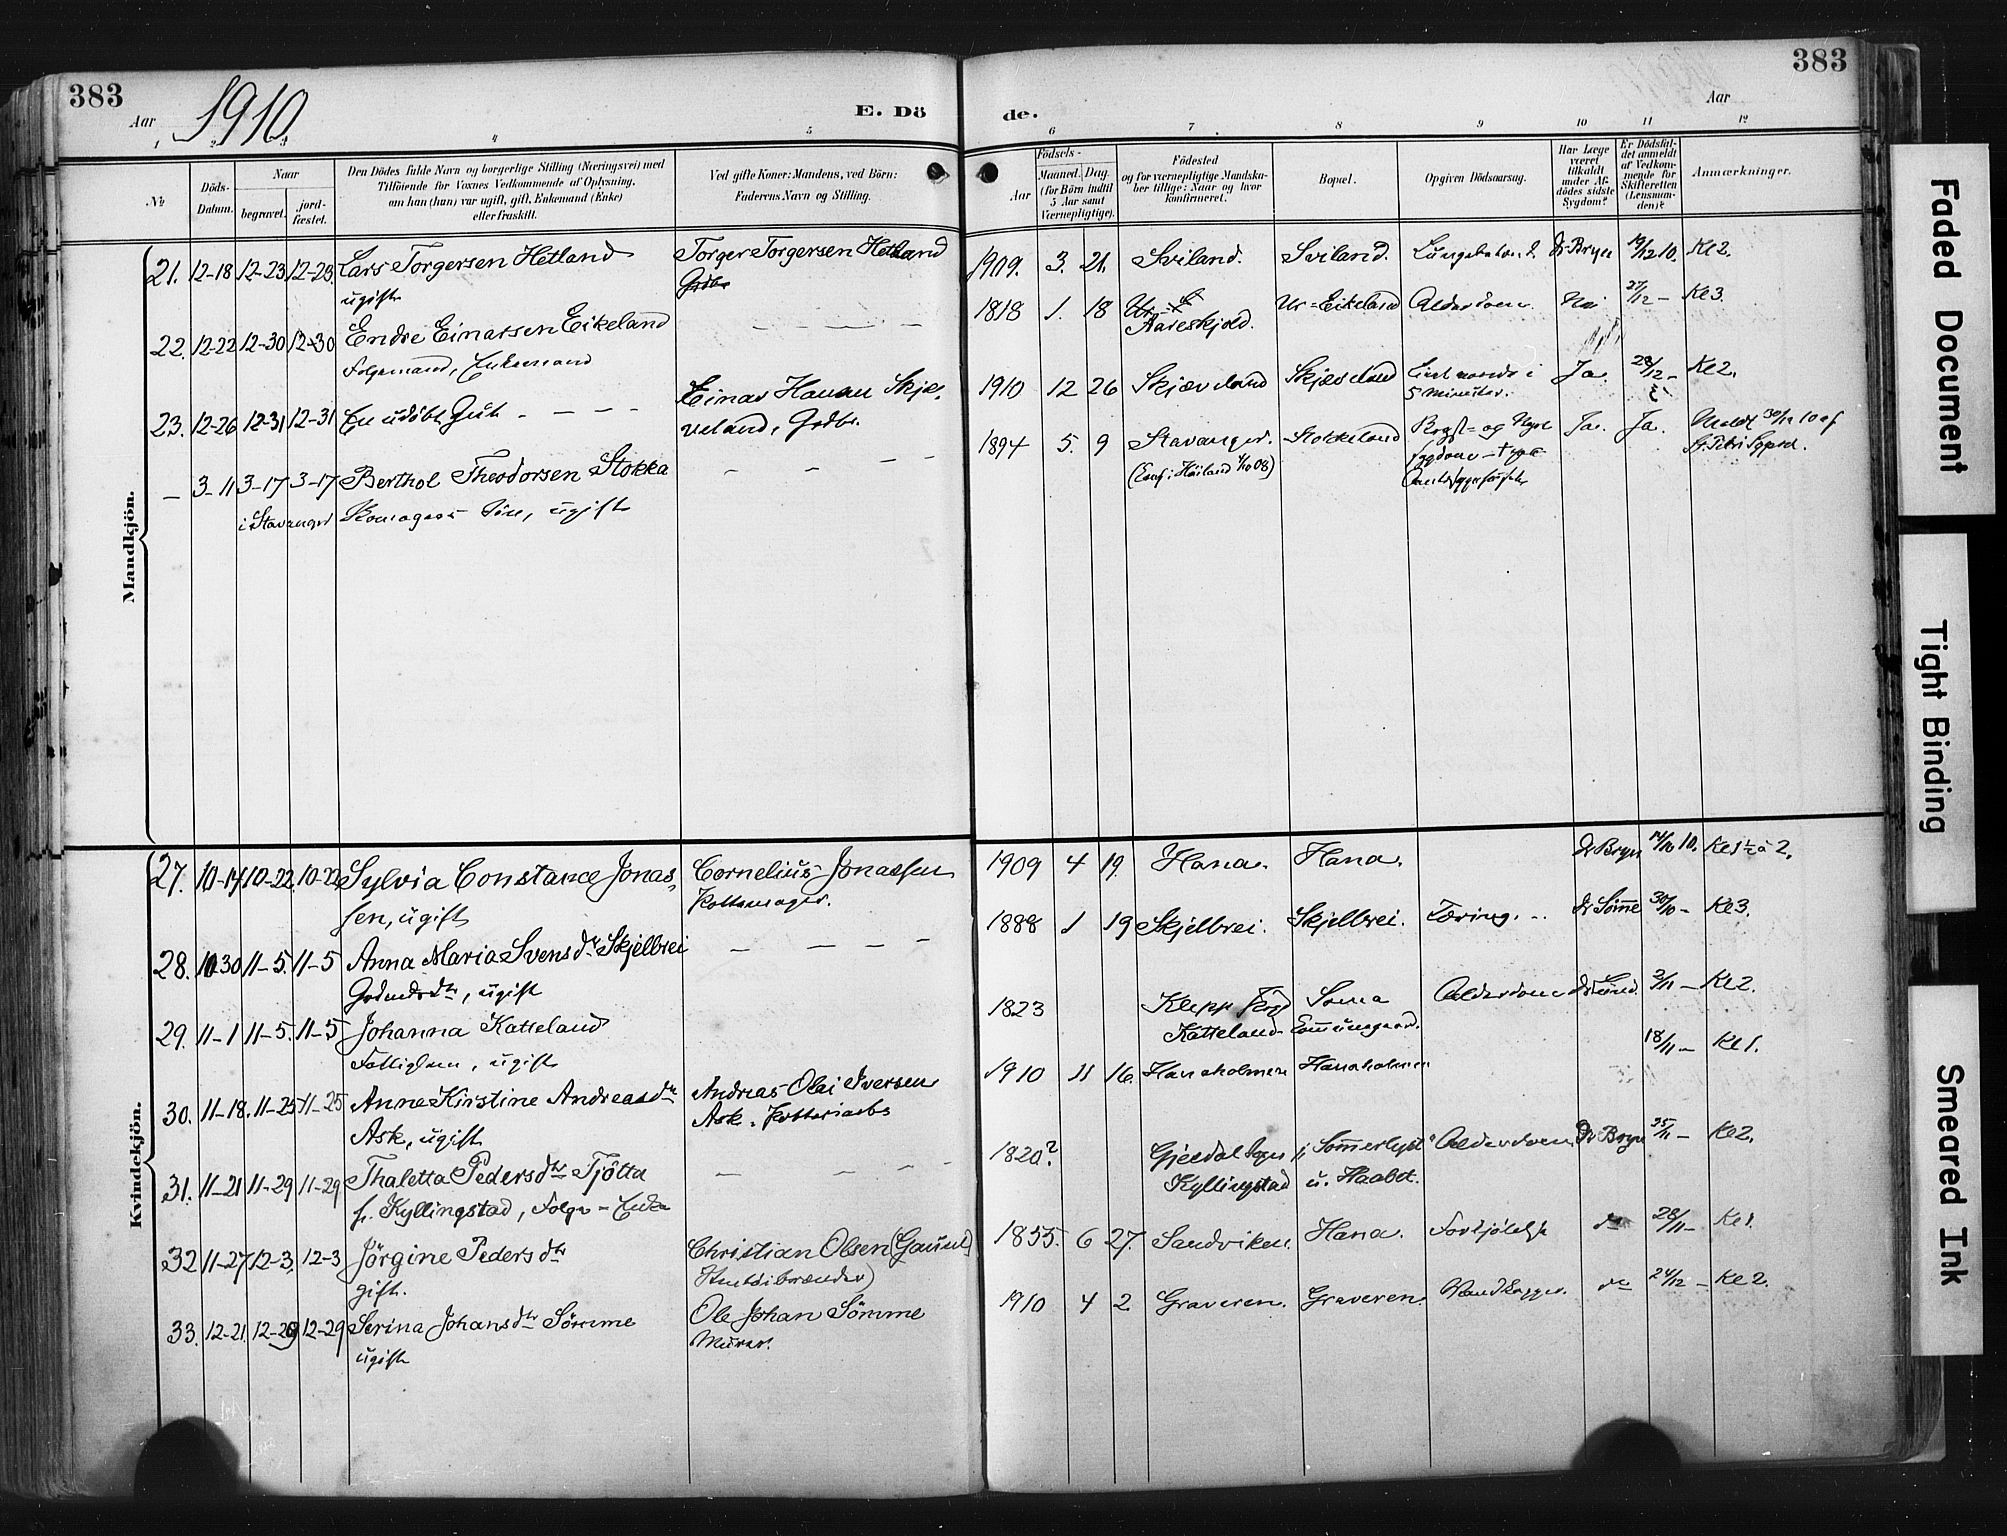 383
383
Aar
1910
E. Dö
de.
Aar
1 2 3 4 5
6 7 8 9 10 11 12
№
Döds-
Datum.
Naar
begravet.
jord-
fæstet.
Den Dödes fulde Navn og borgerlige Stilling (Næringsvei) med
Tilföiende for Voxnes Vedkommende af Oplysning,
om han (hun) var ugift, gift, Enkemand (Enke)
eller fraskilt.
Ved gifte Koner: Mandens, ved Börn:
Faderens Navn og Stilling.
Födsels-
Aar
Maaned.
Dag.
(for Börn indtil
5 Aar samt
Værnepligtige).
Födested
og for værnepligtige Mandska-
ber tillige: Naar og hvor
konfirmeret.
Bopæl.
Opgiven Dödsaarsag.
Har Læge
været
tilkaldt
under Af-
dödes sidste
Sygdom?
Er Dödsfal-
det anmeldt
af Vedkom-
mende for
Skifteretten
(Lensman-
den)?
Anmærkninger.
Mandkjön.
21. 12-18 12-23 12-23 Lars Torgersen Hetland
ugift
Torger Torgersen Hetland
Grdbr.
1909. 3. 21. Sviland. Sviland. Dr Bryn 19/12 10. Kl 2.
22. 12-22 12-30 12-30 Endre Einarsen Eikeland
Folgemand, Enkemand
1818 1. 18 Aareskjold. Ur=Eikeland Alderdom. Nei 27/12 - Kl 3.
23. 12-26 12-31 12-31 En udöbt Gut - - - -
Einar Hanan Skjæ-
veland, Grdbr.
1910 12 26 Skjæveland Skjæveland 5 Minuter. Ja. 28/12 - Kl 2.
- 3-11 3-17 3-17 Berthol Theodorsen Stokka
i Stavanger Sön, ugift
1894 5. 9 Stavanger. Stokkeland Bryst= og Nyre
(Conf. i Höiland 1/10 08)
sygdom Ja. Ja. Meldt 30/12 10 af
Kvindekjön.
27. 10-14 10-22 10-22 Sylvia Constance Jonas-
sen, ugift
Cornelius Jonassen
Pottemager.
1909 4 19. Hana. Hana. Dr Bryn 14/10 10. Kl 1½ à 2.
28. 10-30 11-5. 11-5 Anna Maria Svensdtr Skjelbrei
Grdmdsdtr, ugift
1888 1 19 Skjelbrei. Skjelbrei. Tæring. Dr Sömme 30/10 - Kl 3.
29. 11-1 11-5. 11-5 Johanna Katteland
Fattiglem, ugift
1823 Klepp Sogn Soma Alderdom 2/11 - Kl 2.
Katteland
30. 11-18. 11-25 11-25 Anne Kirstine Andreasdtr
Ask, ugift
Andreas Olai Iversen
Ask. Potteriarb.
1910 11 16. Hanaholmen Hanaholmen 18/11 - Kl 1.
31. 11-21 11-29 11-29 Thaletta Pedersdtr Tjötta
f. Kyllingstad, Folge-Enke
1820? Gjesdal Sogn Sommerlyst Alderdom Dr Bryn 25/11 - Kl 2.
Kyllingstad u. Haabet.
32 11-27 12-3. 12-3 Jörgine Pedersdtr
gift.
Christian Olsen (Gausel)
1855. 6 27. Sandviken. Hana. do 28/11 - Kl 1.
33. 12-21. 12-29 12-29 Serina Johansdtr Sömme
ugift
Ole Johan Sömme
Murer.
1910 4 2 Graveren. Graveren. Vandkopper. do 24/12 - Kl 2.
Faded Document
Tight Binding
Smeared Ink